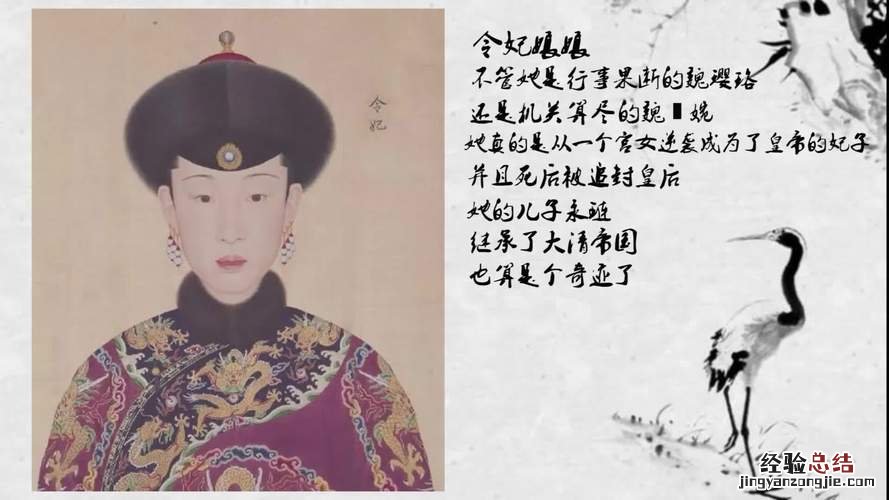 令妃
令妃娘娘
不管她是行事果断的魏璎珞
还是机关算尽的魏▮婉
她真的是从一个宫女逆袭成为了皇帝的妃子
并且死后被追封皇后
她的儿子永琰
继承了大清帝国
也算是个奇迹了
经验总结
jingyanzongjie.com